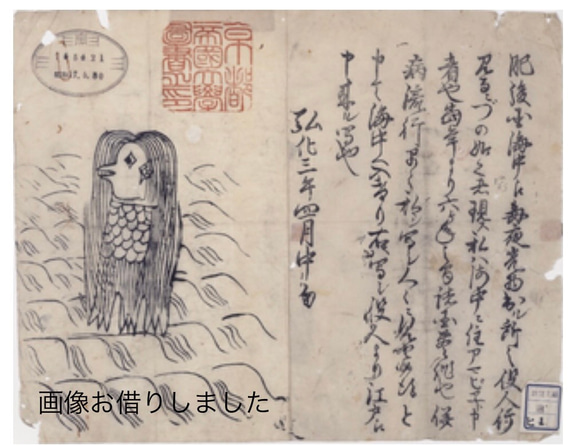 肥後国海中え毎夜光物出ル所之役人行
見るニづの如く者現ス私ハ海中ニ住アマビヱト申
者也当年より六ヶ年之間諸国豊作也併
病流行早々私写シ人々ニ見せ候得と
申て海中へ入けり右写シ役人より江戸え
申来ル写也
弘化三年四月中旬
京都
帝國大學
圖書之印
画像お借りしました